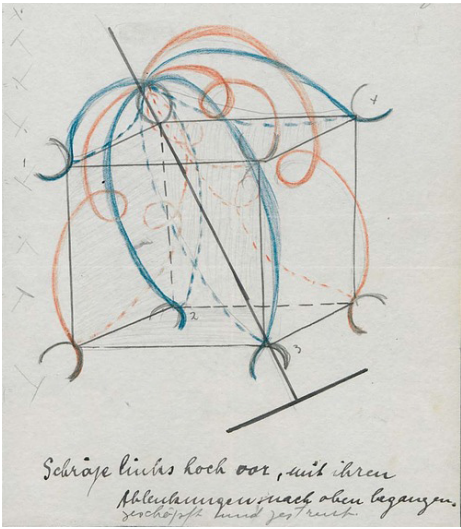 4
2
3
Schräge links hoch vor, mit ihren
Ablenkungen nach oben begangen.
geschöpft und gestreut